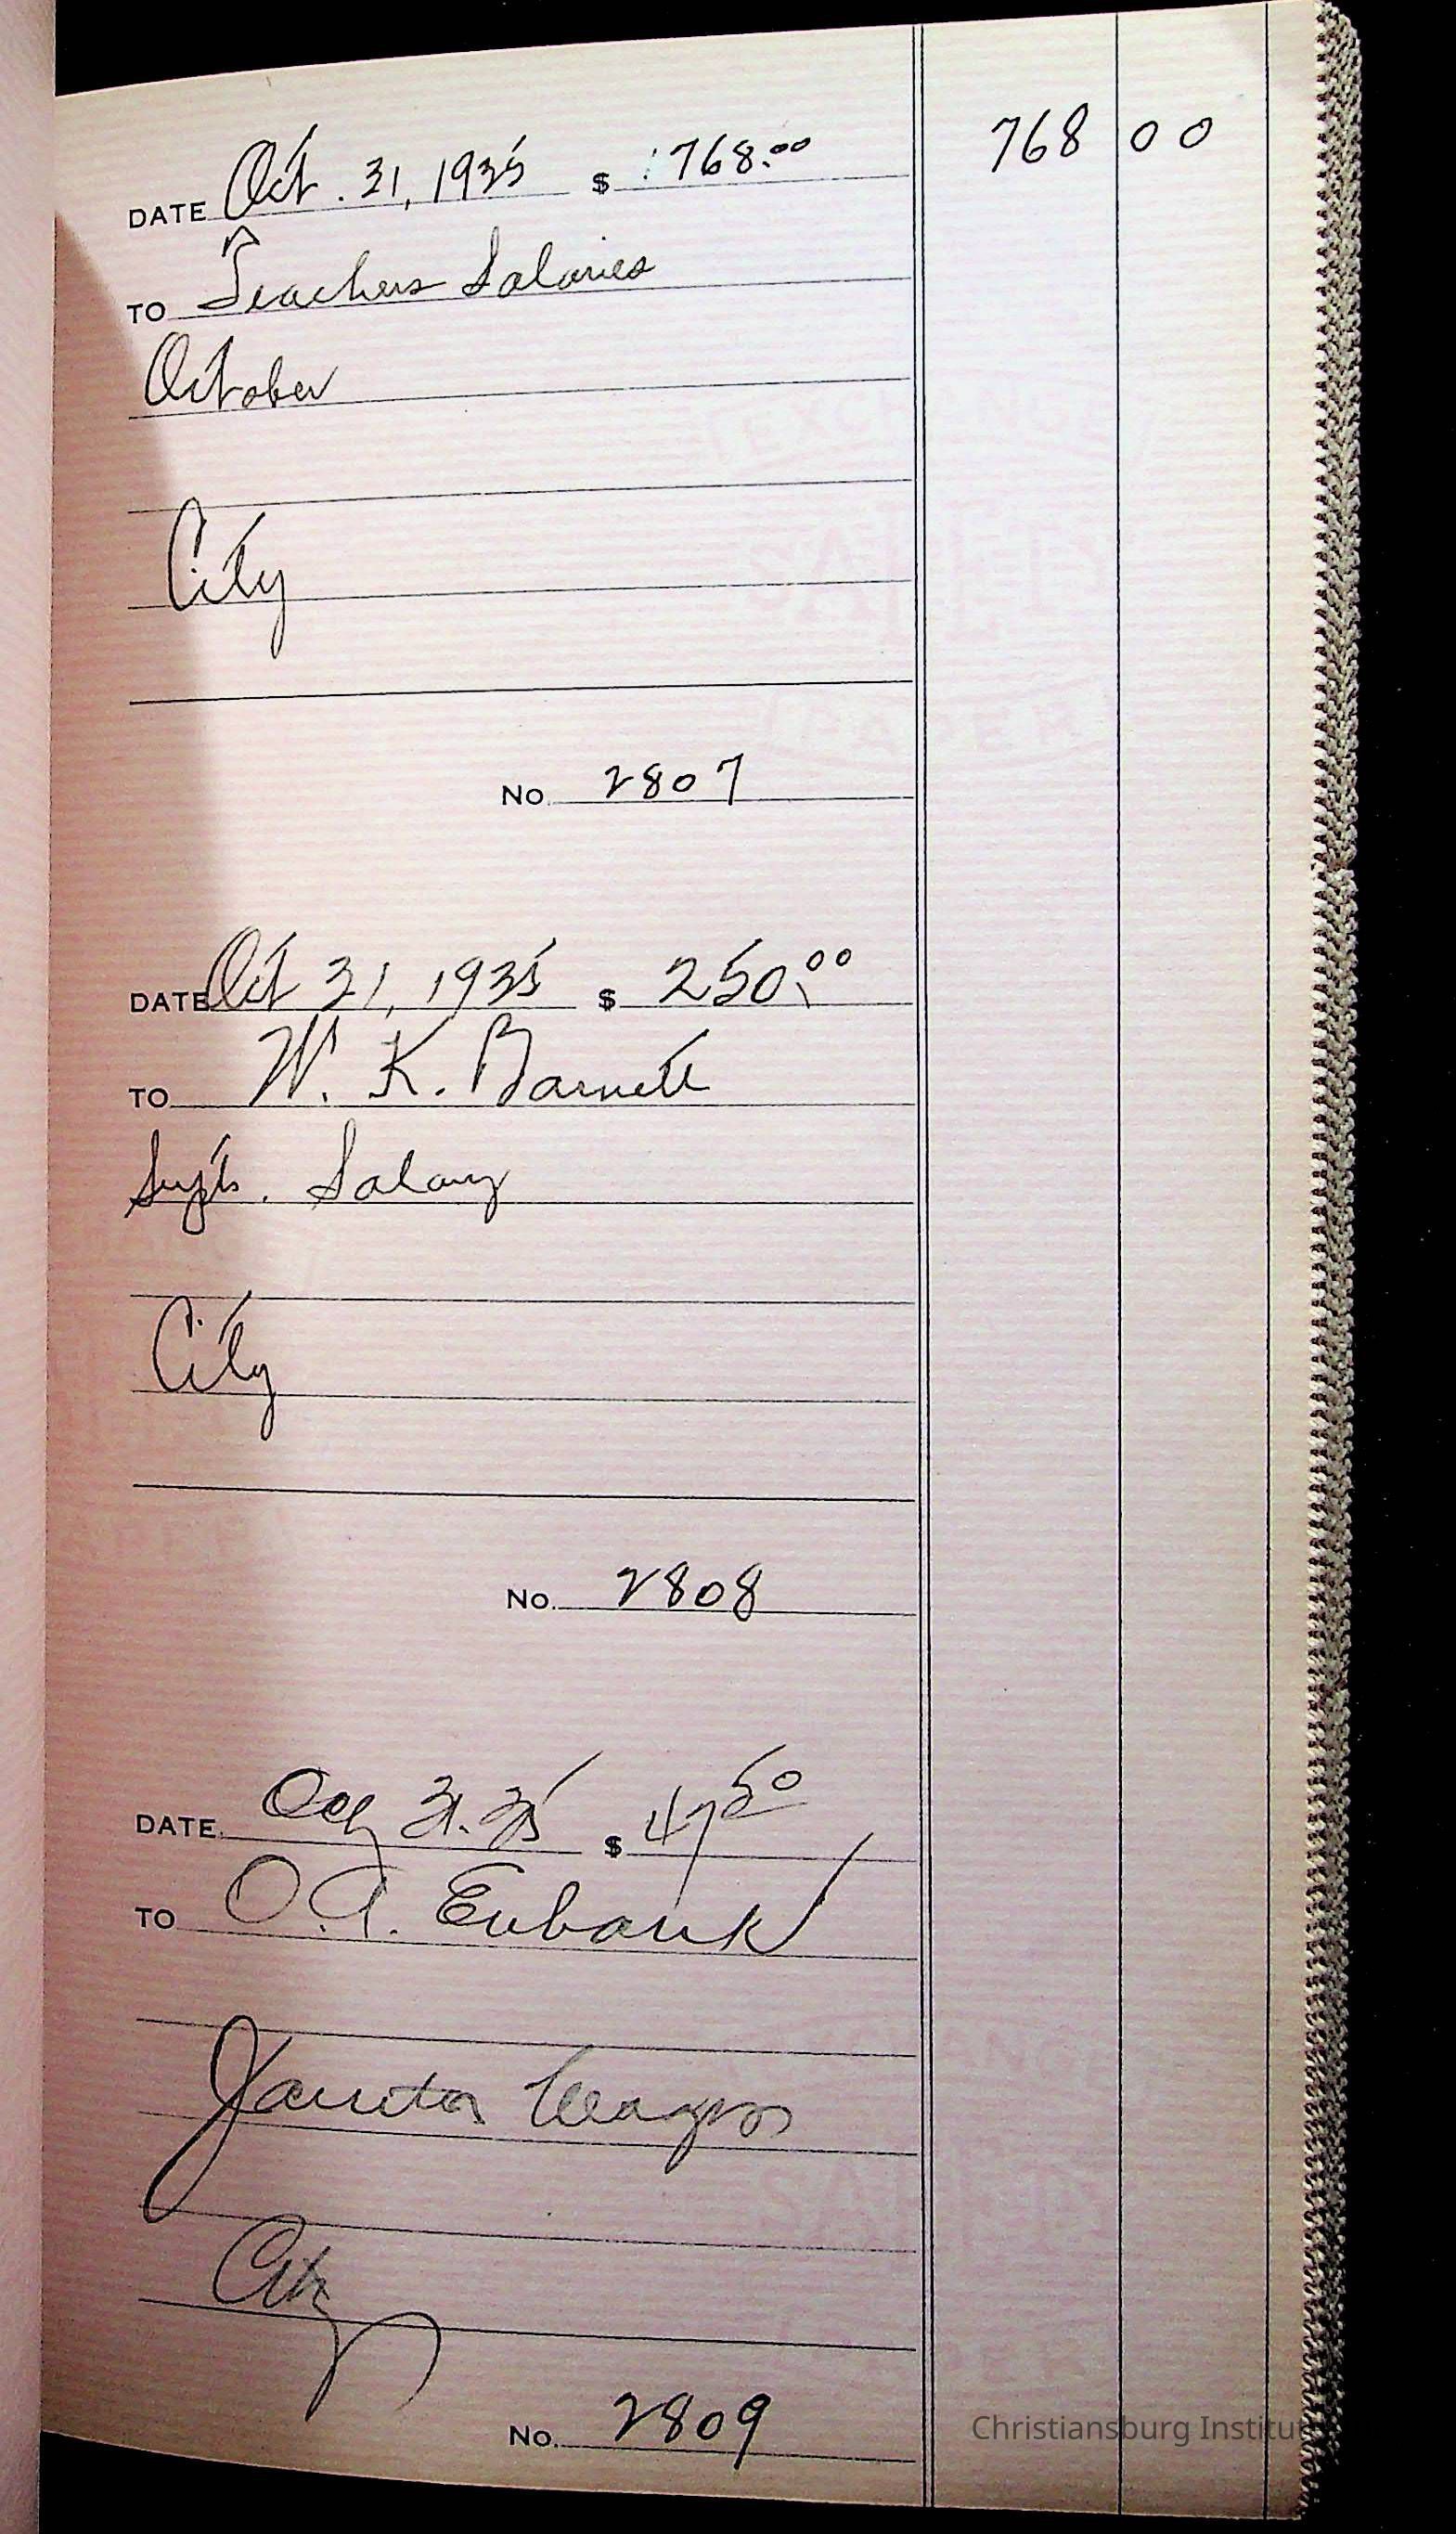 DATE Oct. 31, 1935 $ 768.00 768 00
TO Teachers Salaries
October
City
No. 2807
DATE Oct 31, 1935 $ 250.00
TO W. K. Barnett
Supts. Salary
City
No. 2808
DATE 31. 35 $ 47 50
TO O. A. Eubank
Janitor Wages
City
No. 2809
EXCHANGE
SAFETY
PAPER
Christiansburg Institut